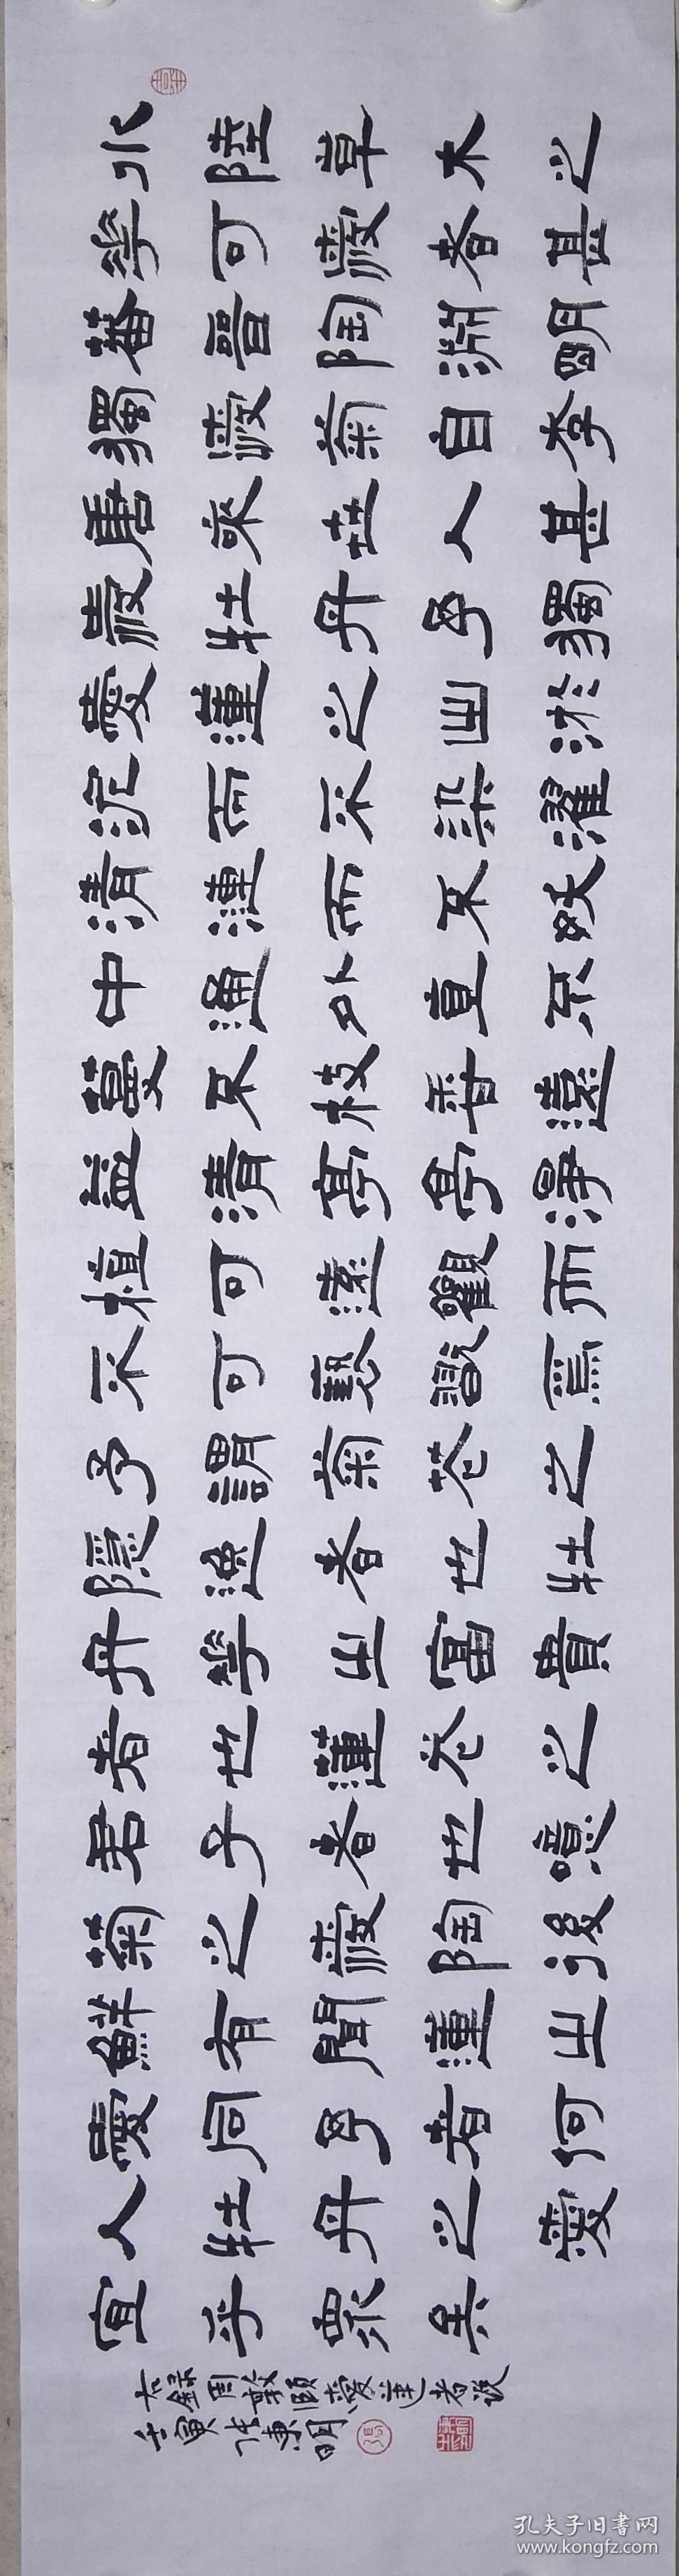 水陸草木之
華可愛者甚
蕃晉陶淵明
獨愛菊自李
唐來世人甚
愛牡丹予獨
愛蓮之出淤
泥而不染濯
清漣而不妖
中通外直不
蔓不枝香遠
益清亭亭淨
植可遠觀而
不可褻翫焉
予謂菊花之
隱逸者也牡
丹華之富貴
者也蓮花之
君子者也噫
菊之愛陶後
鮮有聞蓮之
愛同予者何
人牡丹之愛
宜乎眾矣
右錄周敦頤愛蓮者說
壬寅明
孔夫子旧書网
www.kongfz.com